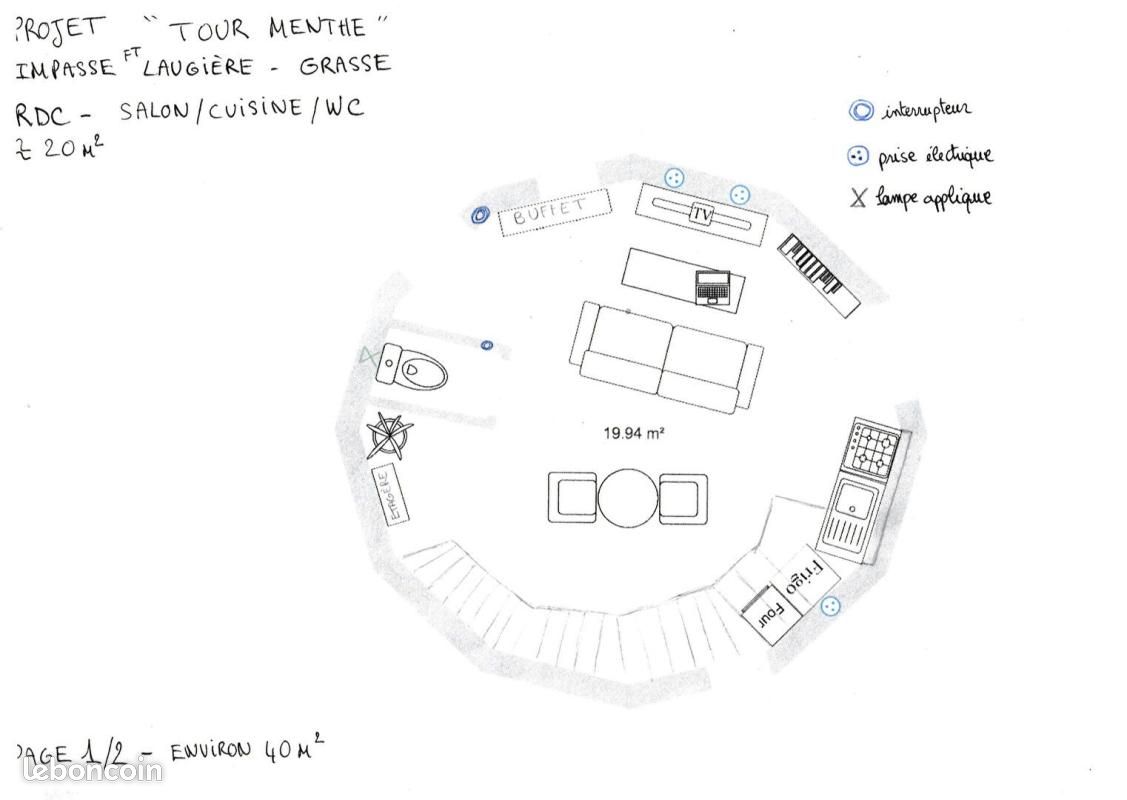 PROJET “TOUR MENTHE”
IMPASSE FT LAUGIÈRE - GRASSE
RDC - SALON/CUISINE/WC
± 20 M²
interrupteur
prise électrique
lampe applique
BUFFET
TV
19.94 m²
ETAGÈRE
Frigo
Four
PAGE 1/2 - ENVIRON 40 M²
leboncoin